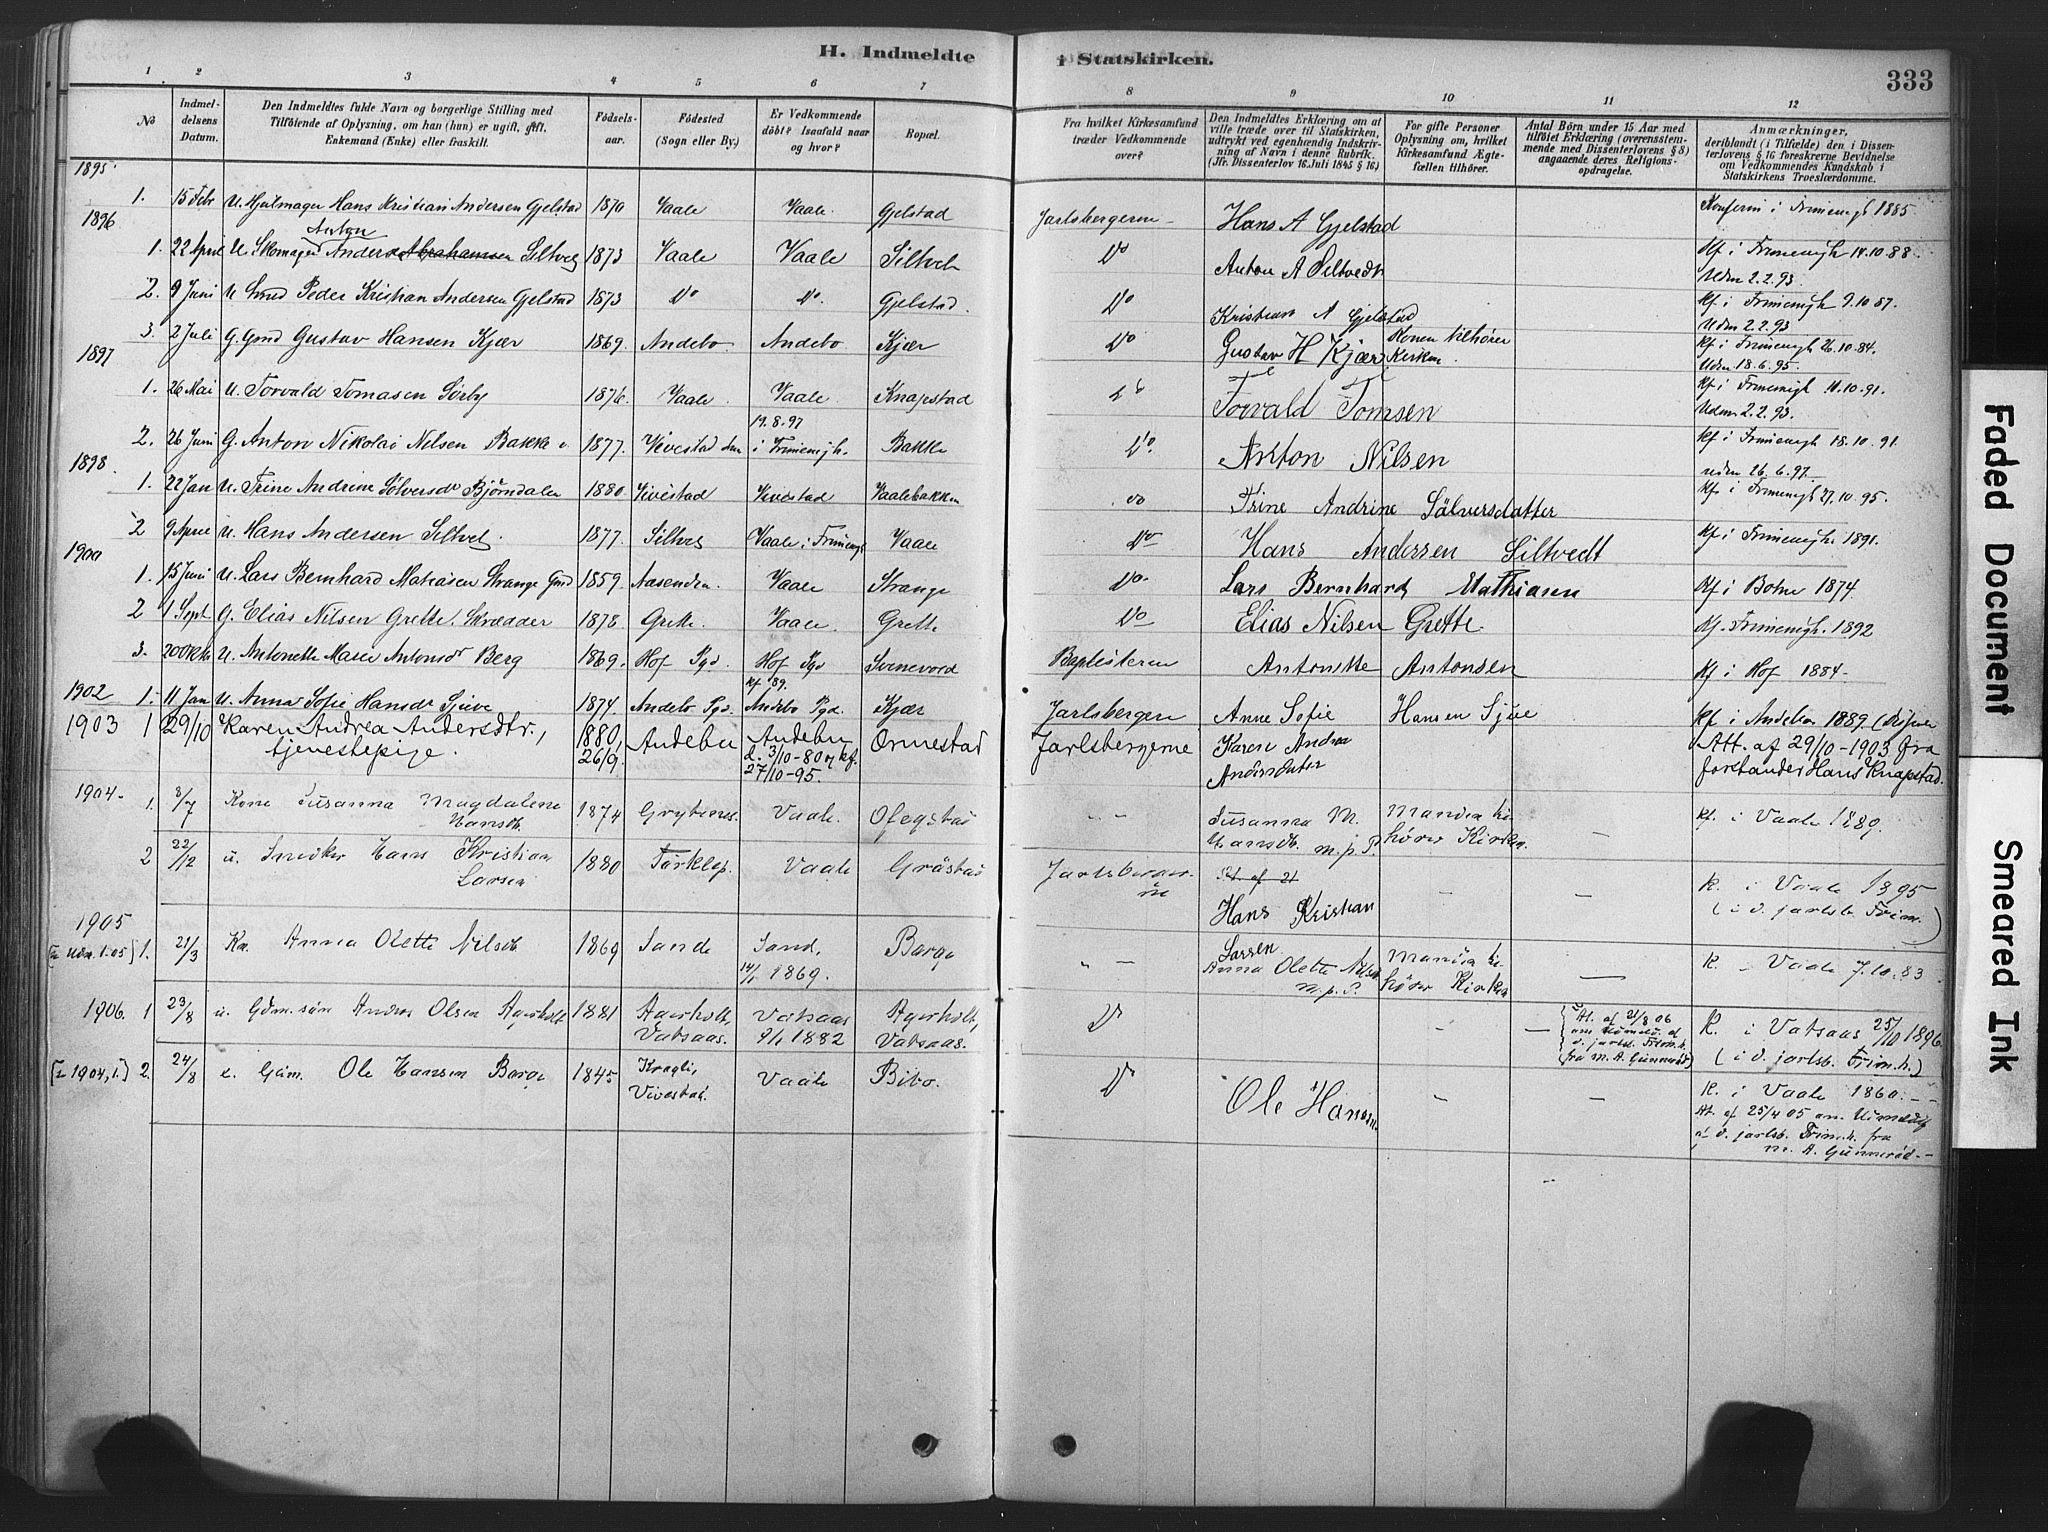 H. Indmeldte i Statskirken.
333
1 2 3 4 5 6 7 8 9 10 11 12
No
Indmeldelsens Datum.
Den Indmeldtes fulde Navn og borgerlige Stilling med
Tilföiende af Oplysning, om han (hun) er ugift, gift,
Enkemand (Enke) eller fraskilt.
Födselsaar.
Födested
(Sogn eller By.)
Er Vedkommende
döbt? Isaafald naar
og hvor?
Bopæl.
Fra hvilket Kirkesamfund
træder Vedkommende
over?
Den Indmeldtes Erklæring om at
ville træde over til Statskirken,
udtrykt ved egenhændig Indskrivning af Navn i denne Rubrik.
(Jfr. Dissenterlov 16 Juli 1845 § 16.)
For gifte Personer
Oplysning om, hvilket
Kirkesamfund Ægtefællen tilhörer.
Antal Börn under 15 Aar med
tilföiet Erklæring (overensstemmende med Dissenterlovens § 8)
angaaende deres Religionsopdragelse.
Anmærkninger,
deriblandt (i Tilfælde) den i Dissenterlovens § 16 foreskrevne Bevidnelse
om Vedkommendes Kundskab i
Statskirkens Troeslærdomme.
1895
1. 15 Febr U. Hjulmager Hans Kristian Andersen Gjelstad 1870 Vaale Vaale Gjelstad Jarlsbergerne Hans A Gjelstad Konfirm i Frimenigh 1885
1896
Anton
1. 22 April U. Skomager Anders Abrahamsen Siltvet 1873 Vaale Vaale Siltvet Do Anton A Siltvedt Kf i Frimenigh 14.10.88.
Udm 2.2.93.
2. 9 Juni U Peder Kristian Andersen Gjelstad 1873 Do Do. Gjelstad. Do Kristian A Gjelstad Kf. i Frimenigh 9.10.87.
Udm 2.2.93
3. 2 Juli G. Gmd Gustav Hansen Kjær 1869. Andebo. Andebo Kjær Do Gustav H Kjær Konen tilhører Kirken. Kf i Frimenigh 26.10.84.
Udm 18.6.95.
1897
1. 26 Mai U. Torvald Tomasen Sörby 1876. Vaale. Vaale. Knapstad Do Torvald Tomsen Kf i Frimenigh 11.10.91.
Udm 2.2.93.
2. 26 Juni G. Anton Nikolai Nilsen Bakke 1877. Vivestad 19.8.97 i Frimenigh. Bakke Do. Anton Nilsen Kf i Frimenigh 18.10.91.
uden 26.6.97.
1898.
1. 22 Jan U. Trine Andrine Sølversdr Bjørndalen 1880. Vivestad Vivestad Vaalebakken Do Trine Andrine Sølversdatter Kf. i Frimenigh 27.10.95.
2 9 April U. Hans Andersen Siltvet. 1877. Siltvet Vaale i Frimenigh Vaale Do Hans Andersen Siltvedt Kf i Frimenigh. 1891.
1900
1. 15 Juni U. Lars Bernhard Matiasen Strange Gmd 1859. Aasenden. Vaale Strange Do. Lars Bernhard Mathiasen Kf i Botne 1874.
2 1 Sept G. Elias Nilsen Grette. Skrædder 1878 Grette. Vaale. Grette Do Elias Nilsen Grette. Kf. Frimenigh. 1892
3. 20 Oktb U. Antonette Marie Antonsdr Berg 1869. Hof Pgd. Hof Pgd Svinevold Baptisterne Antonette Antonsen Kf i Hof 1884.
1902 1. 11 Jan U. Anna Sofie Hansdr Sjuve 1874. Andebo Pgd. kf. 89. Andebo Pgd. Kjær Jarlsbergerne Anne Sofie Hansen Sjue Kf. i Andebo 1889
1903 1 29/10 Karen Andrea Andersdtr., tjenestepige. 1880, 26/9. Andebu Andebu d. 3/10-80 og kf. 27/10-95. Ormestad Jarlsbergerne Karen Andrea Andersdater Att. af 29/10-1903 fra forstander Hans Knapstad.
1904.
1. 8/7 Kone Susanna Magdalene Hansdt. 1874 Grytenes. Vaale. Olegstad " " Susanna M. Hansdt. m. p. P. Manden tilhører Kirken. — kf. i Vaale 1889.
2 22/12 u. Snedker Hans Kristian Larsen 1880 Førklep. Vaale Gråstad Jarlsbergerne Hans Kristian Larsen — — K. i Vaale 1895
(i d. jarlsb. Frim.)
1905
1. 21/3 Ka. Anna Olette Nilsdt 1869 Sande Sand, 14/1 1869. Borge " — Anna Olette Nilsdt m. p. P. Manden tilhører Kirken — K. i Vaale 7.10.83
1906. 1 23/8 u. Gdm. søn Anders Olsen Agerholt 1881 Agerholt, Vatsaas. Vatsaas 9/1 1882 Agerholt, Vatsaas. D — — At. af 21/8 06 om Udmeld. af d. jarlsb. Frim.h. fra M. A. Gunnerød K. i Vatsaas 25/10 1896.
(i d. jarlsb. Frim.h.)
2. 24/8 e. Gdm. Ole Hansen Borge 1845 Kragli, Vivestad. Vaale Bibo. D Ole Hansen. — — K. i Vaale 1860. - -
At. af 25/4 05 om Udmeldelse
af d. jarlsb. Frim.h. fra
M. A. Gunnerød. -
Faded Document
Smeared Ink